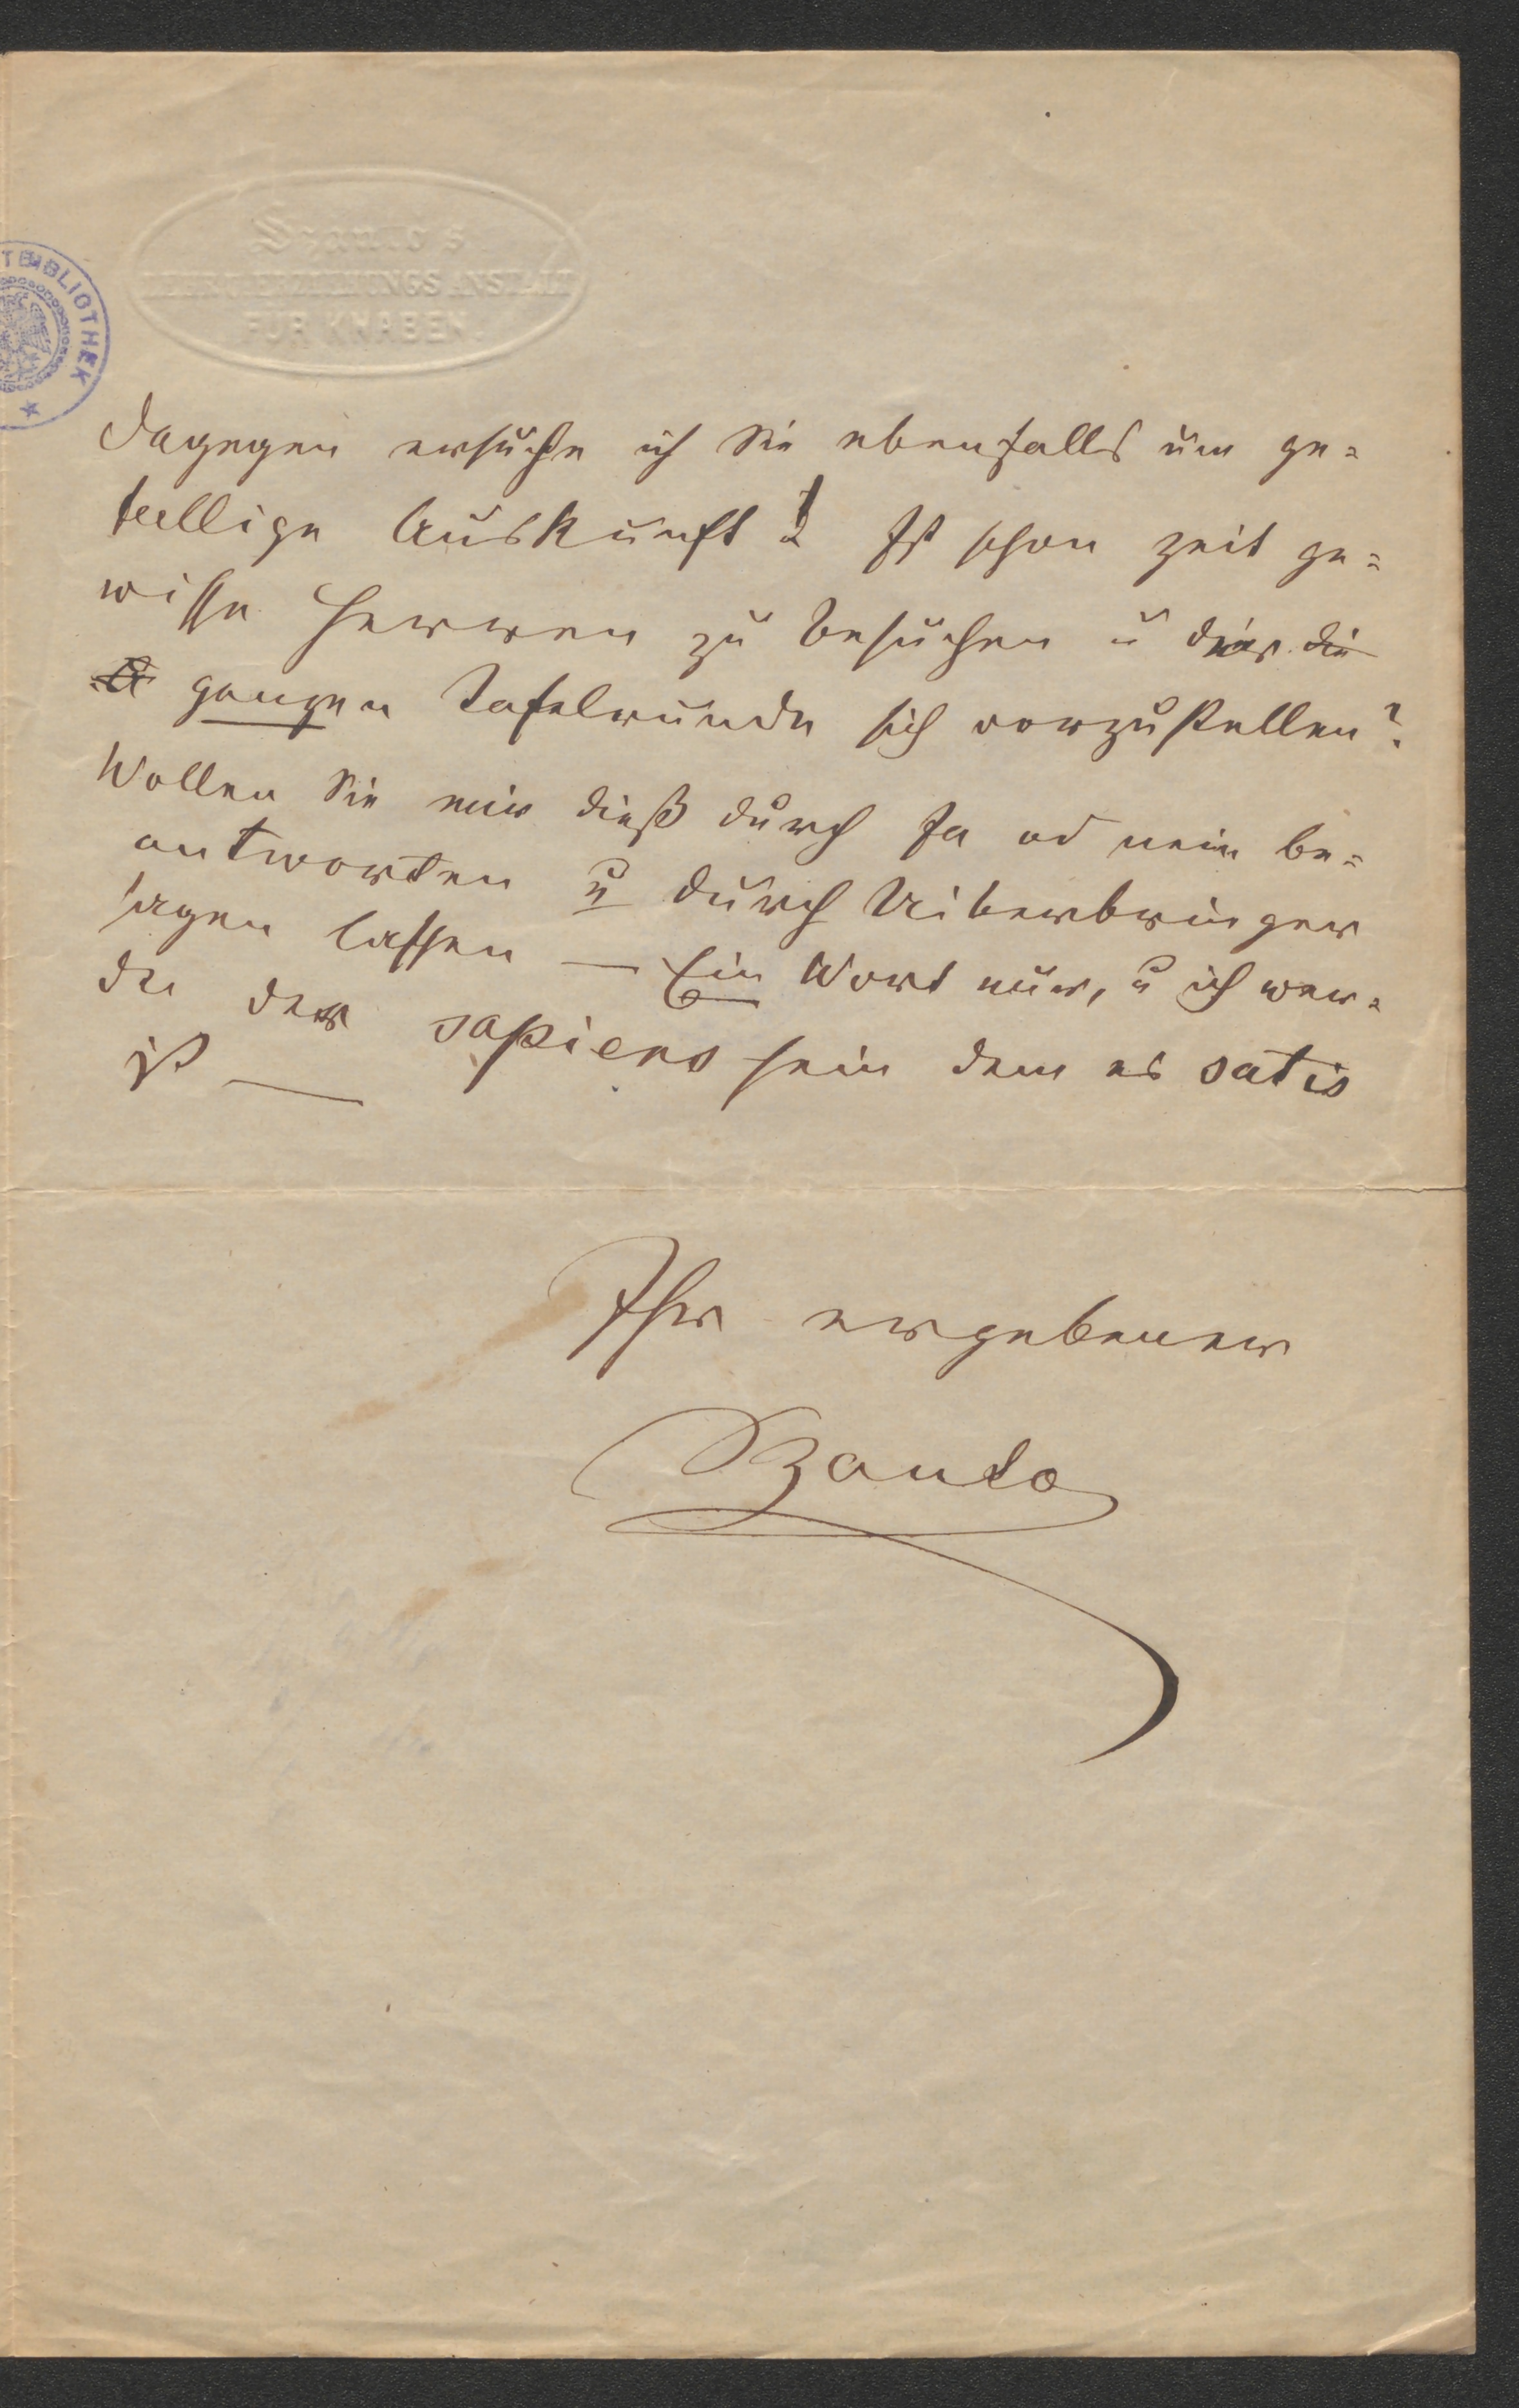 Szanto's
LEHR U. ERZIEHUNGS ANSTALT
FÜR KNABEN.
TBIBLIOTHEK
Dagegen ersuche ich Sie ebenfalls um ge=
fällige Auskunft! Ist schon Zeit ge=
wisse Herren zu besuchen u der die
ganzen Tafelrunde sich vorzustellen?
Wollen Sie mir dieß durch Ja od nein be=
antworten u durch Uiberbringer
sagen lassen — Ein Wort nur, u ich wer=
de der sapiens sein dem es satis
ist —
Ihr ergebener
Szanto